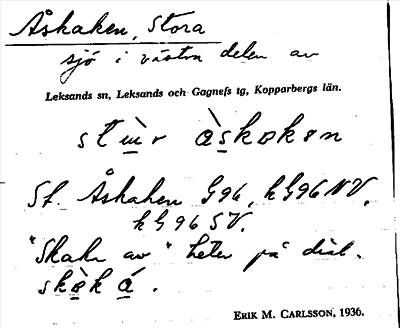 Åskaken, Stora
sjö i västra delen av
Leksands sn, Leksands och Gagnefs tg, Kopparbergs län.
St. Åskaken G96, hG96NV,
hG96SV.
"Skaka av" heter på dial.
ERIK M. CARLSSON, 1936.